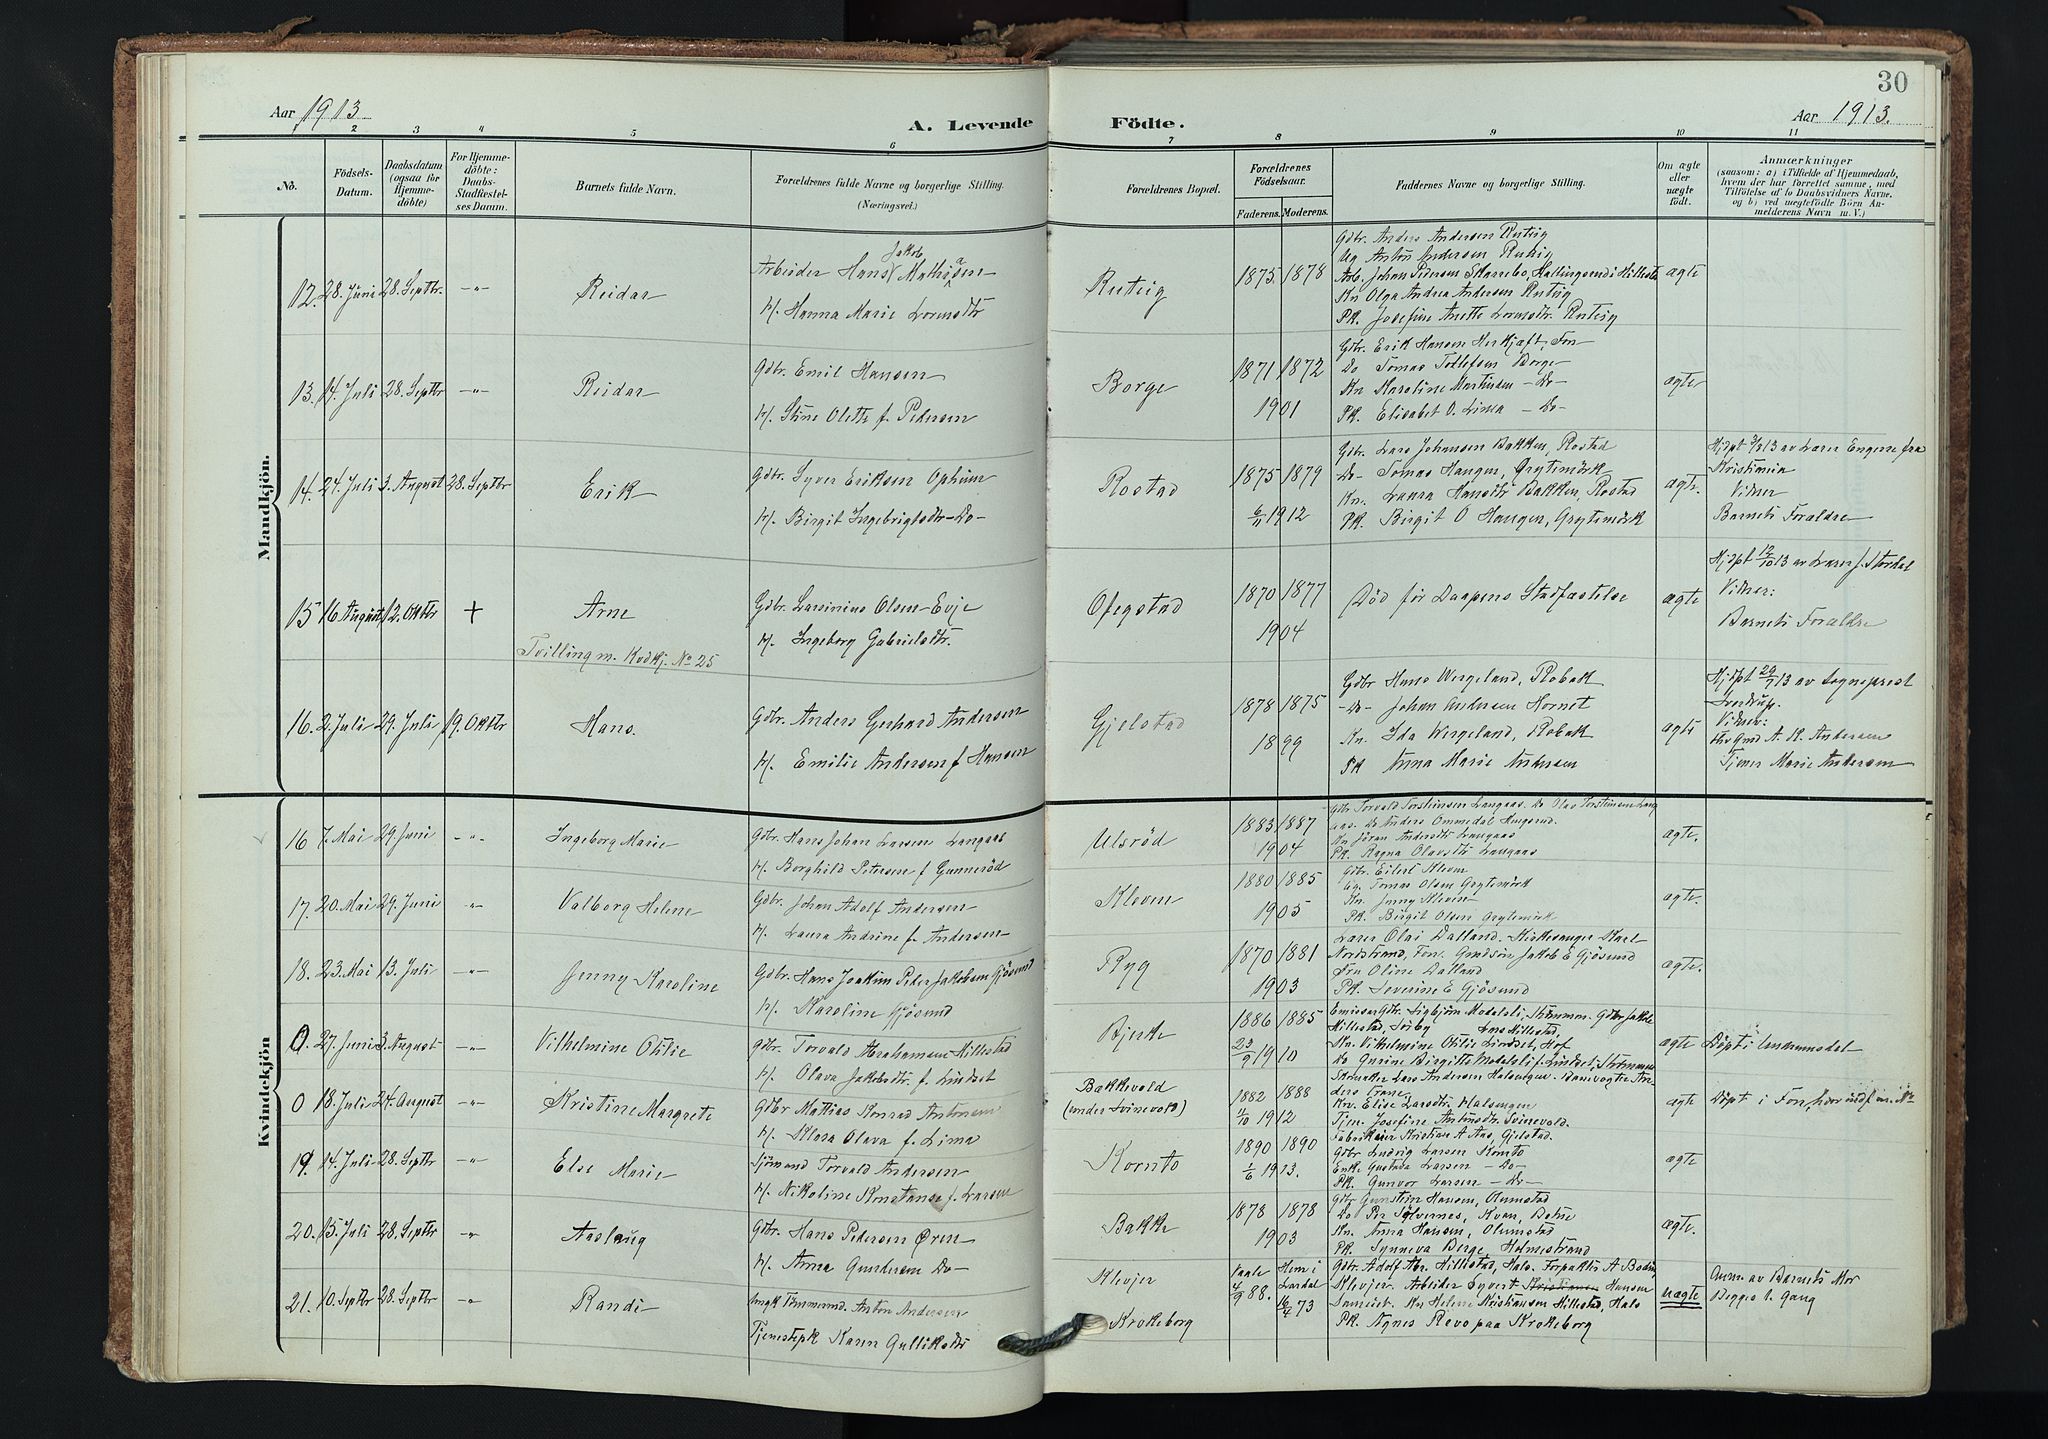 30
Aar 1913
A. Levende Födte.
Aar 1913.
2 3 4 5 6 7 8 9 10 11
No.
Födsels-Datum.
Daabsdatum (ogsaa för Hjemmedöbte)
For Hjemmedöbte: Daabs-Stadfæstelses Datum.
Barnets fulde Navn.
Forældrenes fulde Navne og borgerlige Stilling. (Næringsvei.)
Forældrenes Bopæl.
Forældrenes Födselsaar.
Faderens. Moderens.
Faddernes Navne og borgerlige Stilling.
Om ægte eller uægte födt.
Anmærkninger
(saasom: a) i Tilfælde af Hjemmedaab,
hvem der har forrettet samme, med
Tilföielse af to Daabsvidners Navne,
og b) ved uægtefödte Börn An-
melderens Navn m. V.)
Mandkjön.
12. 28. Juni 28. Septbr. -"- Reidar
Arbeider Hans Jakob Mathisen
H. Hanna Marie Lorensdtr
Rutsig
1875 1878
Gdbr. Anders Andersen Rutsig
Ug Anton Andersen Rutsig
Arb. Johan Pedersen Skarrebo, Hallingsrud i Hillesta
Kn Olga Andrea Andersen Rutsig
Pk. Josefine Anette Lorensdtr. Rutsig
ægte
13. 14. Juli 28. Septbr -"- Reidar
Gdbr. Emil Hansen
H. Stine Olette f. Pedersen
Borge
1871 1872
1901
Gdbr. Erik Hansen Herkjaft, Fon
Do Tomas Tollefsen Borge
Kn Karoline Martinsen -Do-
Pk. Elisabet O. Lima -Do-
ægte
14. 24. Juli 3. August 28. Septbr Erik
Gdbr. Syver Eriksen Ophum
H. Birgit Ingebrigtsdtr -Do-
Rostad
1875 1879
6/11 1912
Gdbr. Lars Johansen Bakken, Rostad
Do Tomas Haugen, Grytemörk
Kn. Laura Hansdtr Bakken, Rostad
Pk. Birgit O Haugen, Grytemörk
ægte.
Hjdpt 3/8 13 av Lærer Engene fra
Kristiania
Vidner
Barnets Forældre
15 16 August 12. Oktbr + Arne
Tvilling m. Kvdkj. No 25
Gdbr. Larsinius Olsen Evje
H. Ingeborg Gabrielsdtr.
Ofegstad
1870 1877
1904
Död før Daapens Stadfæstelse
ægte
Hjdpt 12/10 13 av Lærer J. Stordal
Vidner:
Barnets Forældre
16. 2. Juli 29. Juli 19. Oktbr Hans.
Gdbr. Anders Gerhard Andersen
H. Emilie Andersen f Hansen
Gjelstad
1878 1875
1899
Gdbr Hans Wergeland, Robak
-Do- Johan Andersen Hornet
Kn. Ida Wergeland, Robak
Pk Anna Marie Andersen
ægte
Hjdöpt 29/7 13 av Sogneprest
Vidner:
A. H. Andersen
Tjener Marie Andersen
Kvindekjön
16 7. Mai 29. Juni -"- Ingeborg Marie
Gdbr. Hans Johan Larsen Langaas
H. Borghild Petersen f Gunneröd
Ulsröd
1883 1887
1904
Gdbr Torvald Torstensen Langaas. Do Olav Torstensen Lang
aas. Do Anders Ommedal Haugsrud.
Kn Jöran Andersdtr Langaas
Pk. Ragna Olavsdtr Langaas
ægte.
17. 20. Mai 29. Juni -"- Valborg Helene
Gdbr. Johan Adolf Andersen
H. Laura Andrine f. Andersen
Kleven
1880 1885
1905
Gdbr. Eilert Kleven
Ug. Tomas Olsen Grytemörk
Kn. Jenny Kleven
Pk. Birgit Olsen Grytemörk
ægte.
18. 23. Mai 13. Juli -"- Jenny Karoline
Gdbr. Hans Joakim Peter Jakobsen Gjösund
H. Karoline Gjösund
Ryg
1870 1881
1903
Lærer Olai Dalland. Kirkesanger Karl
Nordstrand, Fon. Grdsön Jakob E Gjösund
Fru Oline Dalland
Pk. Severine E Gjösund
ægte.
0. 27. Juni 3. August -"- Vilhelmine Otilie
Gdbr. Torvald Abrahamsen Hillestad
H. Olava Jakobsdtr. f. Lindset
Bjerke
1886 1885
23/9 1910
Emissær Gdbr. Sigbjörn Modalsli, Strömmen. Gdbr Jakob
Hillestad, Sörby Lars Hillestad,
Kn. Vilhelmine Otilie Lindset, Hof
Do Gurine Birgitte Modalsli f. Lindset, Strömmen
ægte
Döpt i
0 18. Juli 24. August -"- Kristine Margrete
Gdbr Mattias Konrad Antonsen
H. Klara Olava f. Lima
Bakkevold
(under Svinevoll)
1882 1888
11/10 1912
Skomaker Lars Andersen Halsengen. Banevogter An-
ders Trane
Kn. Elise Larsdtr Halsengen
Tjen. Josefine Antonsdtr. Svinevold.
ægte
Döpt i Fon, hvor indf m. No
19. 14. Juli 28. Septbr -"- Else Marie
Sjömand Torvald Andersen
H. Nikoline Konstanse f. Larsen
Kornto
1890 1890
1/6 1913.
Fabrikeier Kristian A Aas, Gjelstad.
Gdbr Ludvig Larsen Kornto
Enke Gustava Larsen -Do-
Pk. Gunvor Larsen -Do-
ægte
20. 15. Juli 28. Septbr -"- Aaslaug
Gdbr. Hans Pedersen Ören
H. Anna Gundersen Do-
Bakke
1878 1878
1903
Gdbr Gunstein Hansen, Olumstad
Do Per Sölvernes, Kvern, Botne
Kn. Anna Hansen, Olumstad
Pk. Synneva Berge, Holmestrand
ægte.
21. 10. Septbr 28. Septbr -"- Randi
Ungk Tömmermd. Anton Andersen
Tjenestepk Karen Gulliksdtr
Klevjer
Krokeborg
Vaale 4/9 88.
Hem i Lardal 16/4 73
Gdbr. Adolf Abr. Hillestad, Hals. Forpakter A Bodin,
Klevjer. Arbeider Syvert Kristiansen Hansen
Kn Helene Kristiansen Hillestad, Hals
Pk. Agnes Revo paa Krokeborg
uægte
Anm. av Barnets Mor
Begges 1. Gang